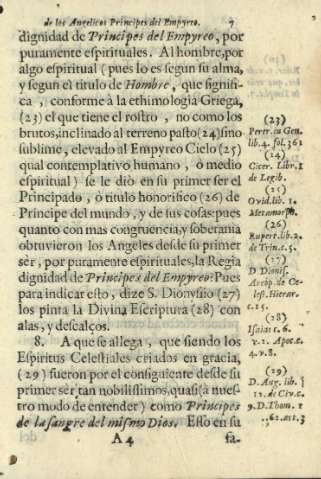 de los Angelicos Principes del Empyreo. 7
dignidad de Principes del Empyreo, por
puramente espirituales. Al hombre, por
algo espiritual (pues lo es segun su alma,
y segun el titulo de Hombre, que signifi-
ca, conforme à la ethimologia Griega,
(23) el que tiene el rostro, no como los
brutos, inclinado al terreno pasto (24) sino
sublime, elevado al Empyreo Cielo (25)
qual contemplativo humano, ò medio
espiritual) se le diò en su primer ser el
Principado, ò titulo honorifico (26) de
Principe del mundo, y de sus cosas: pues
quanto con mas congruencia, y soberania
obtuvieron los Angeles desde su primer
ser, por puramente espirituales, la Regia
dignidad de Principes del Empyreo? Pues
para indicar esto, dize S. Dionysio (27)
los pinta la Divina Escriptura (28) con
alas, y descalços.
8. A que se allega, que siendo los
Espiritus Celestiales criados en gracia,
(29) fueron por el consiguiente desde su
primer ser tan nobilissimos, quasi (à nues-
tro modo de entender) como Principes
de la sangre del mismo Dios. Esso en su
A 4 fa-
(23)
Perer. in Gen.
lib. 4. fol. 361
(24)
Cicer. Libr. 1
de Legib.
(25)
Ovid. lib. 1.
Metamorph.
(26)
Rupert. lib. 2.
de Trin. c. 5.
(27)
D. Dionis.
Areop. de Ce-
lest. Hierar.
c. 15.
(28)
Isaiæ c. 6.
v. 2. Apoc. c.
4. v. 8.
(29)
D. Aug. lib.
12. de Civ. c.
9. D. Thom. 1
62. art. 3